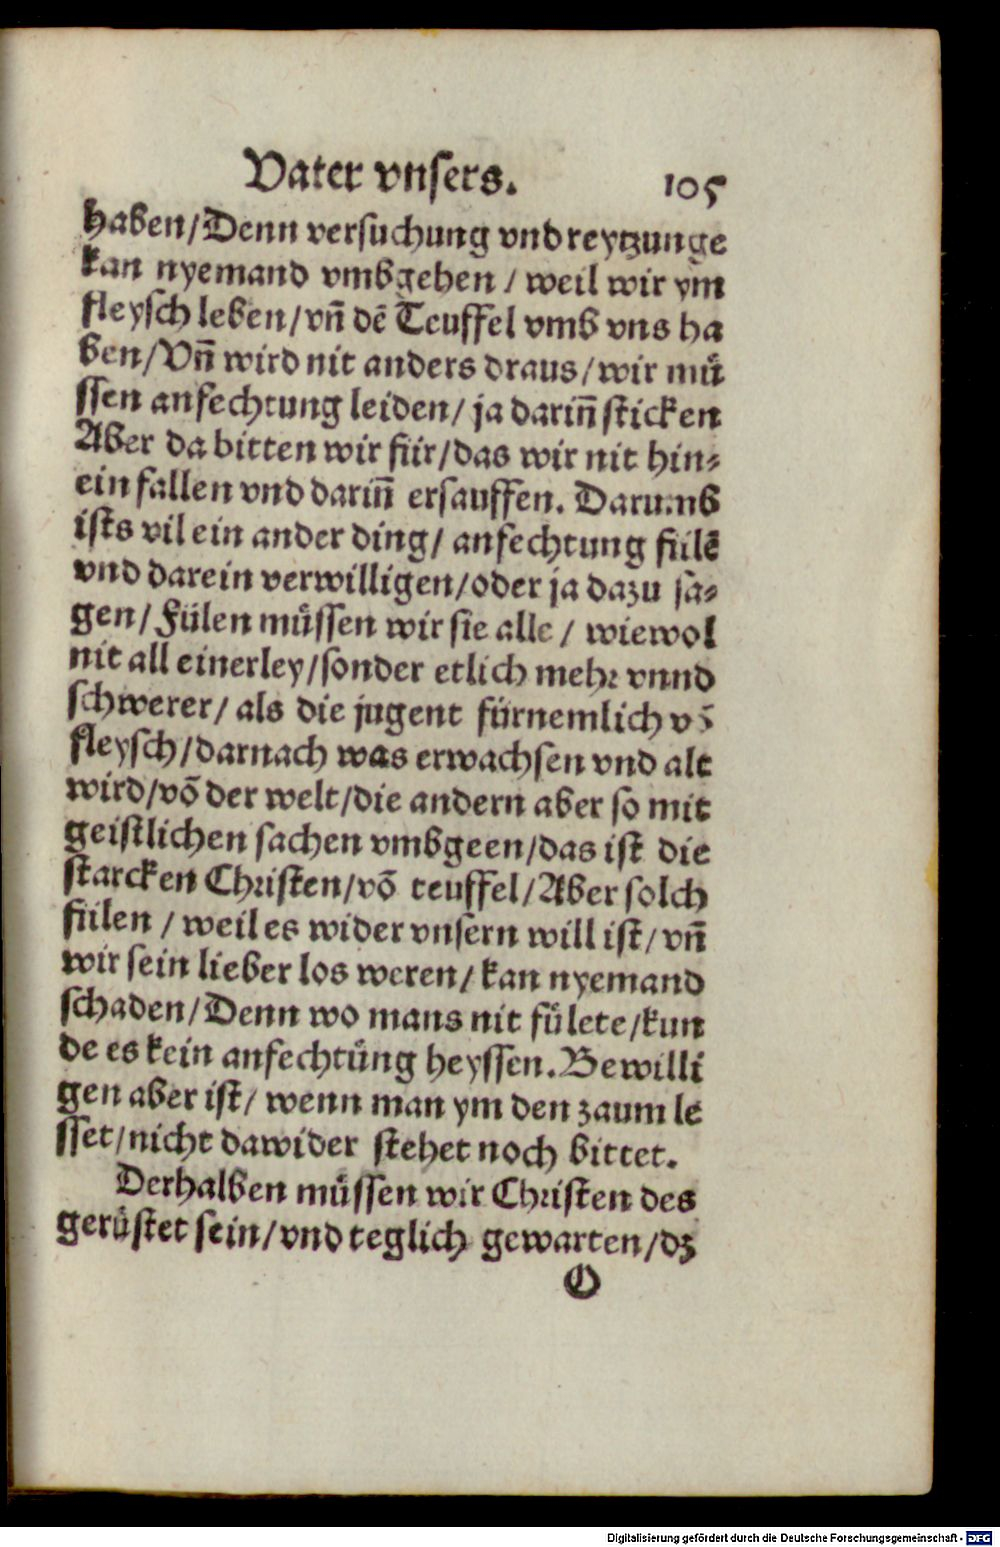 Vater vnsers. 105
haben/Denn versuchung vnd reytzunge
kan nyemand vmbgehen / weil wir ym
fleysch leben/vñ dē Teuffel vmb vns ha
ben/Vñ wird nit anders draus/wir muͤ
ssen anfechtung leiden/ ja dariñ sticken
Aber da bitten wir für/das wir nit hin⸗
ein fallen vnd dariñ ersauffen. Darumb
ists vil ein ander ding/ anfechtung fülē
vnd darein verwilligen/oder ja dazu sa⸗
gen/Fülen muͤssen wir sie alle / wiewol
nit all einerley/sonder etlich mehr vnnd
schwerer/ als die jugent fürnemlich võ
fleysch/darnach was erwachsen vnd alt
wird/võ der welt/die andern aber so mit
geistlichen sachen vmbgeen/das ist die
starcken Christen/võ teuffel/Aber solch
fülen / weil es wider vnsern will ist/ vñ
wir sein lieber los weren/ kan nyemand
schaden/Denn wo mans nit fuͤlete/kun
de es kein anfechtuͤng heyssen. Bewilli
gen aber ist/ wenn man ym den zaum le
sset/nicht dawider stehet noch bittet.
Derhalben muͤssen wir Christen des
geruͤstet sein/vnd teglich gewarten/dz
O
Digitalisierung gefördert durch die Deutsche Forschungsgemeinschaft - DFG